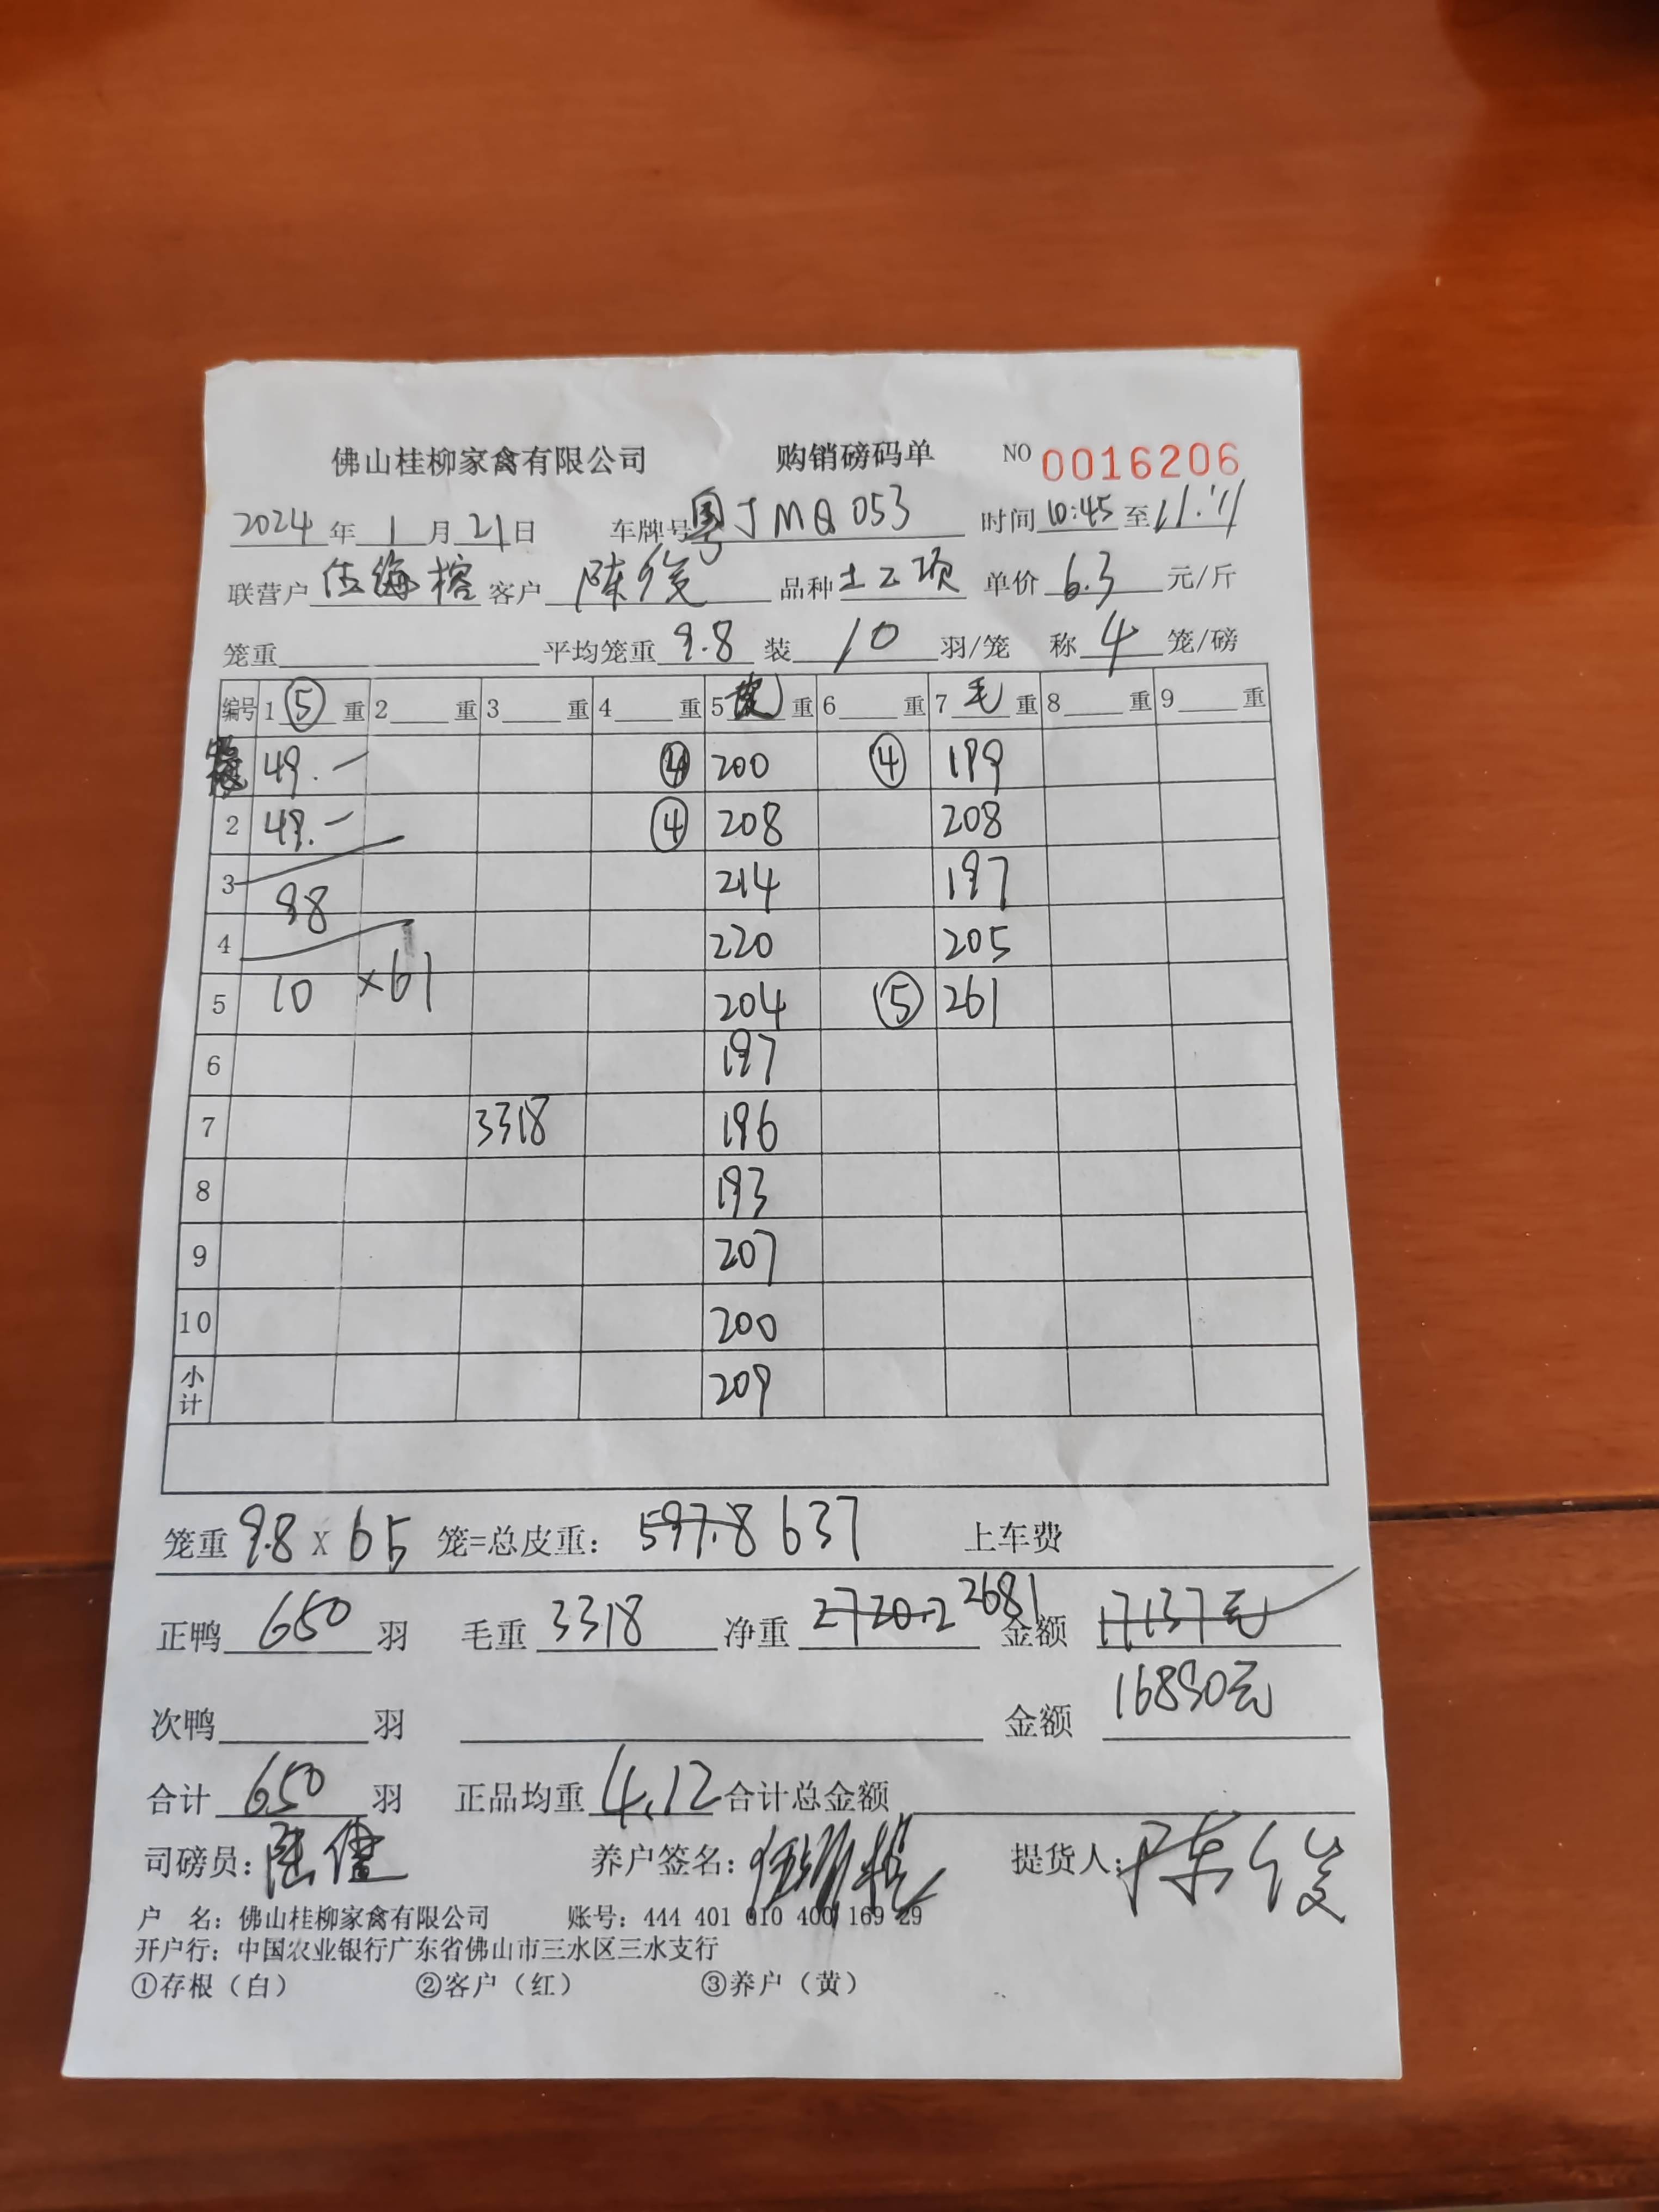 佛山桂柳家禽有限公司 购销磅码单 NO 0016206
2024年1月21日 车牌号粤JMQ053 时间10:45至11:11
联营户 伍海榕 客户 陈俊 品种 土二项 单价 6.3 元/斤
笼重 平均笼重 9.8 装 10 羽/笼 称 4 笼/磅
编号 1 ⑤ 重 2 重 3 重 4 重 5 重 6 重 7 毛 重 8 重 9 重
49.- ④ 200 ④ 199
2 49.- ④ 208 208
3 98 214 197
4 220 205
5 10 ×61 204 ⑤ 261
6 197
7 3318 196
8 193
9 207
10 200
小计 209
笼重 9.8 X 65 笼=总皮重: 597.8 637 上车费
正鸭 650 羽 毛重 3318 净重 2720.2 2681 金额 17137元
次鸭 羽 金额 16890元
合计 650 羽 正品均重 4.12 合计总金额
司磅员: 养户签名: 提货人: 陈俊
户 名: 佛山桂柳家禽有限公司 账号: 444 401 010 400 169 29
开户行: 中国农业银行广东省佛山市三水区三水支行
①存根（白） ②客户（红） ③养户（黄）